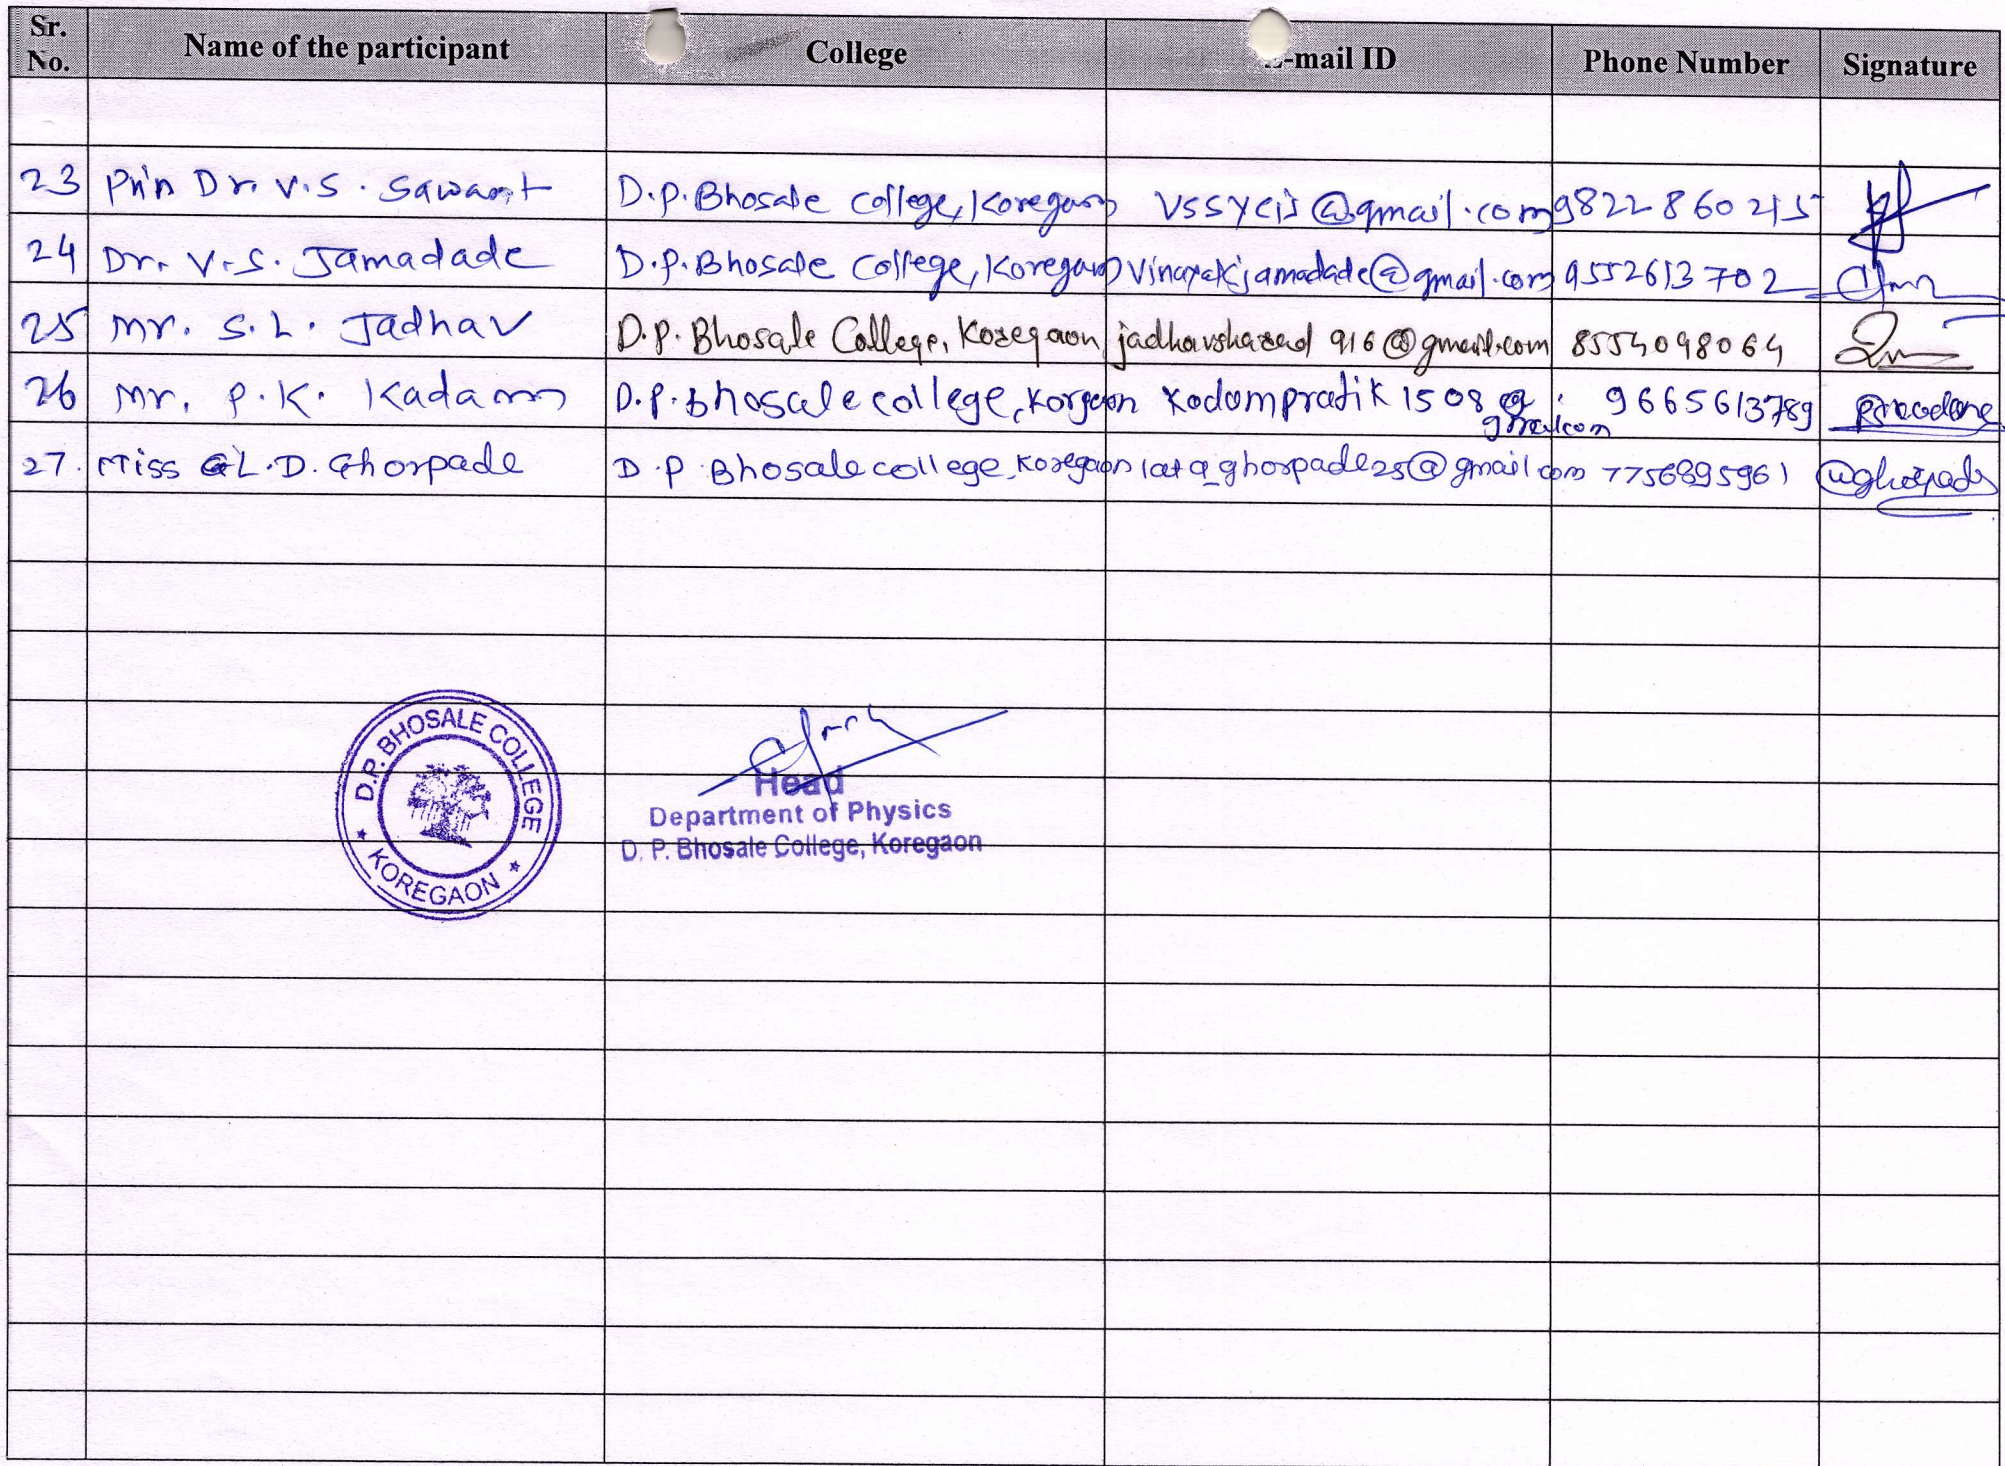 Sr. No. Name of the participant College -mail ID Phone Number Signature
23 Prin Dr. V.S. Sawant D.P. Bhosale College, Koregaon vssycis@gmail.com 9822860215
24 Dr. V.S. Jamadade D.P. Bhosale College, Koregaon vinayakjamadade@gmail.com 9552613702
25 Mr. S.L. Jadhav D.P. Bhosale College, Koregaon jadhavsharad916@gmail.com 8554098064
26 Mr. P.K. Kadam D.P. Bhosale college, Korgaon kadampratik1508@gmail.com 9665613789
27. Miss L.D. Ghorpade D.P Bhosale college, Koregaon lata_ghorpade25@gmail com 7756895961
D.P. BHOSALE COLLEGE
★ KOREGAON ★
Head
Department of Physics
D. P. Bhosale College, Koregaon